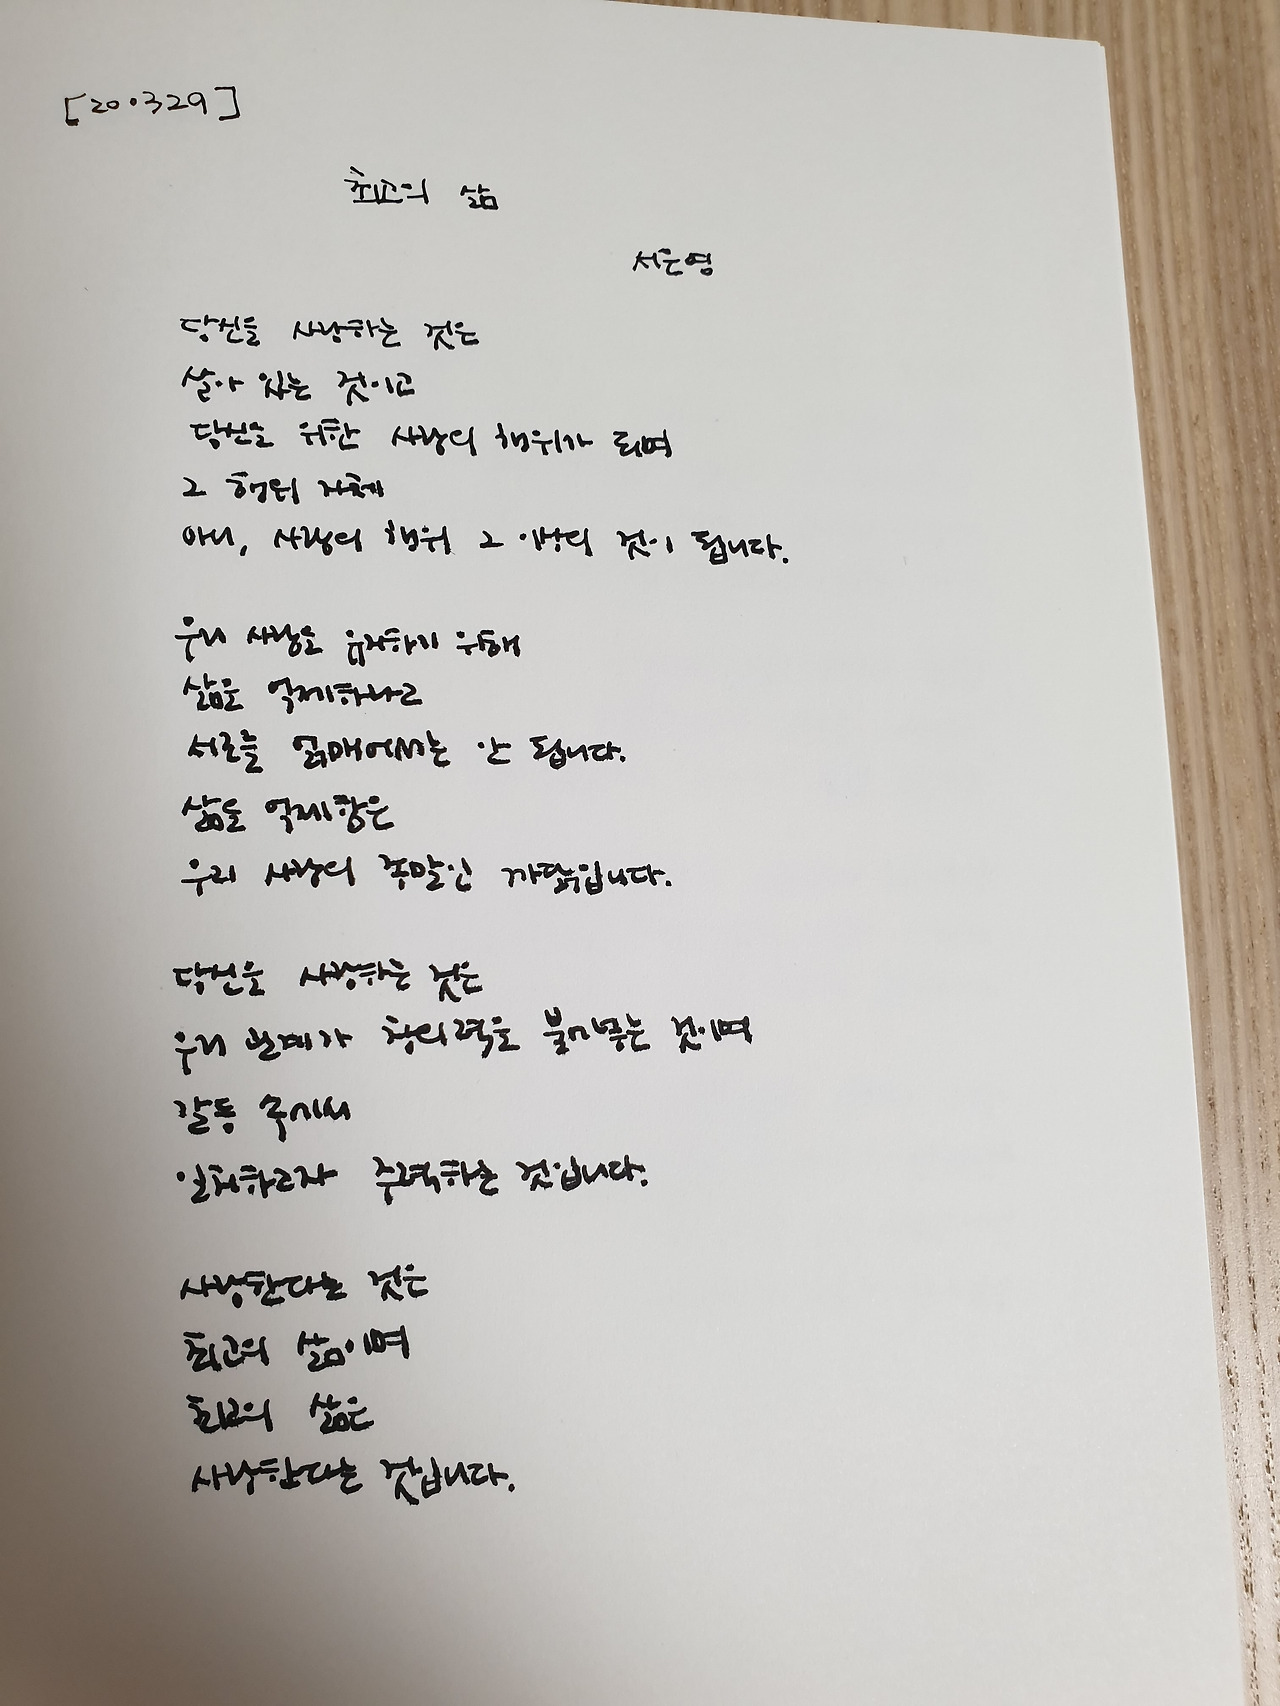 [20.329]
최고의 삶
서은영
당신을 사랑하는 것은
살아 있는 것이고
당신을 위한 사랑의 행위가 되며
그 행위 자체
아니, 사랑의 행위 그 이상의 것이 됩니다.
우리 사랑을 유지하기 위해
삶을 억제하나고
서로를 얽매어서는 안 됩니다.
삶을 억제함은
우리 사랑의 종말인 까닭입니다.
당신을 사랑하는 것은
우리 관계가 창의력을 불어넣는 것이며
갈등 속에서
일치하고자 주력하는 것입니다.
사랑한다는 것은
최고의 삶이며
최고의 삶은
사랑한다는 것입니다.